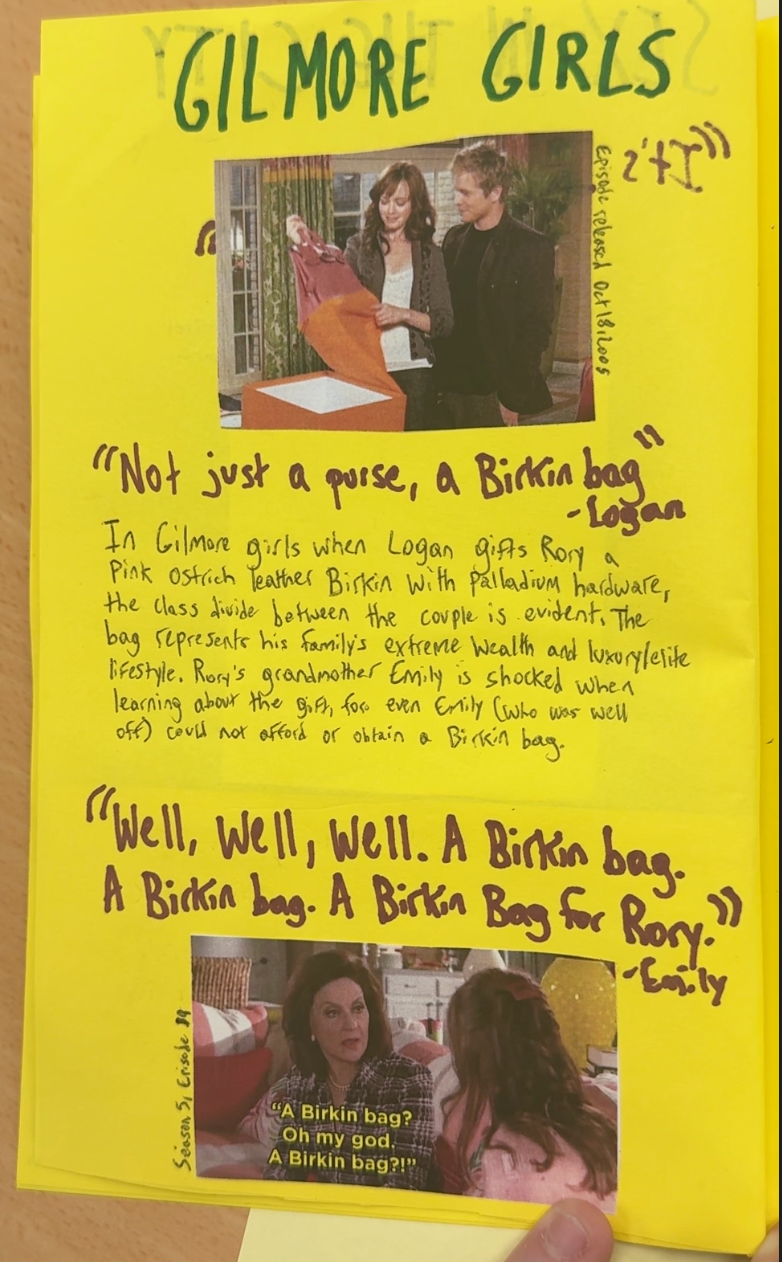 GILMORE GIRLS
Episode released Oct 18, 2005
"Not just a purse, a Birkin bag"
-Logan
In Gilmore girls when Logan gifts Rory a
Pink ostrich leather Birkin with Palladium hardware,
the class divide between the couple is evident. The
bag represents his family's extreme wealth and luxury/elite
lifestyle. Rory's grandmother Emily is shocked when
learning about the gift, for even Emily (who was well
off) could not afford or obtain a Birkin bag.
"Well, Well, Well. A Birkin bag.
A Birkin bag. A Birkin Bag for Rory."
-Emily
Season 5, Episode
"A Birkin bag?
Oh my god,
A Birkin bag?!"